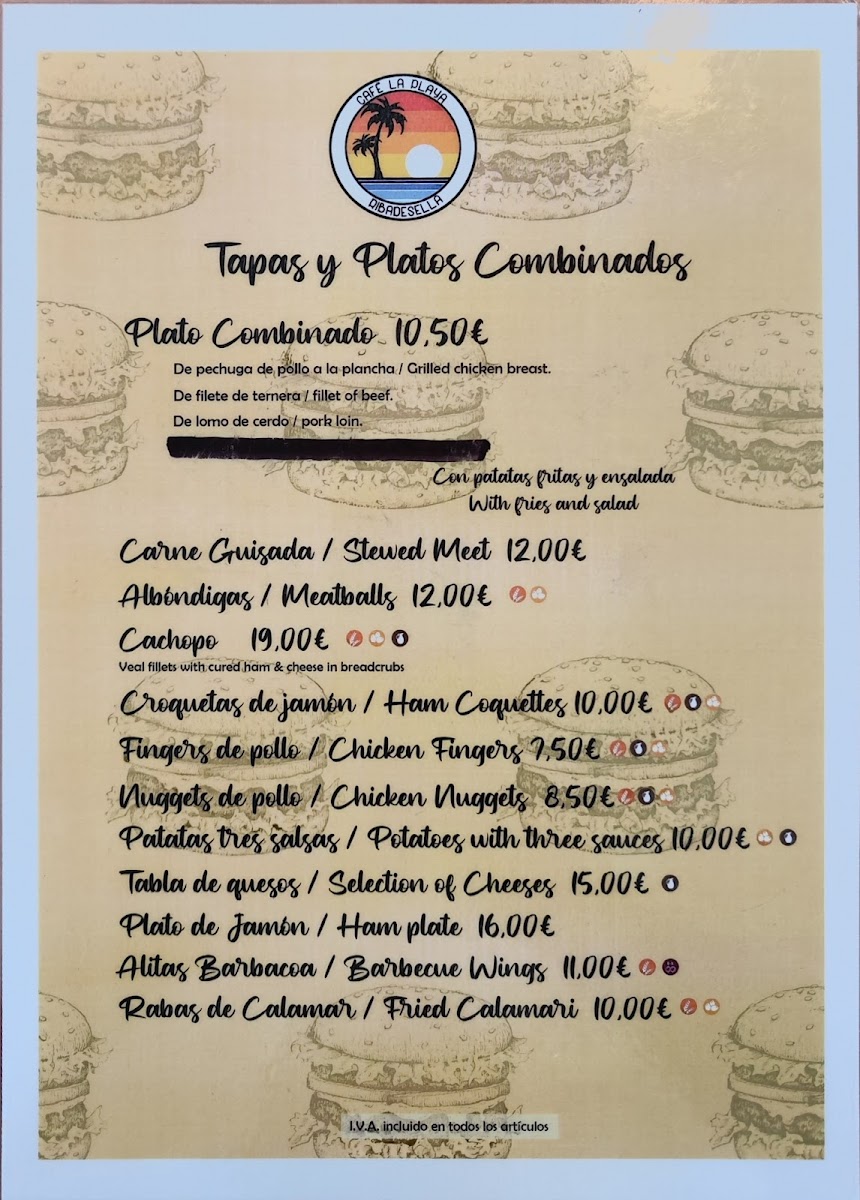 CAFÉ LA PLAYA
RIBADESELLA
Tapas y Platos Combinados
Plato Combinado 10,50€
De pechuga de pollo a la plancha / Grilled chicken breast.
De filete de ternera / fillet of beef.
De lomo de cerdo / pork loin.
Con patatas fritas y ensalada
With fries and salad
Carne Guisada / Stewed Meet 12,00€
Albóndigas / Meatballs 12,00€
Cachopo 19,00€
Veal fillets with cured ham & cheese in breadcrubs
Croquetas de jamón / Ham Coquettes 10,00€
Fingers de pollo / Chicken Fingers 7,50€
Nuggets de pollo / Chicken Nuggets 8,50€
Patatas tres salsas / Potatoes with three sauces 10,00€
Tabla de quesos / Selection of Cheeses 15,00€
Plato de Jamón / Ham plate 16,00€
Alitas Barbacoa / Barbecue Wings 11,00€
Rabas de Calamar / Fried Calamari 10,00€
I.V.A. incluido en todos los artículos